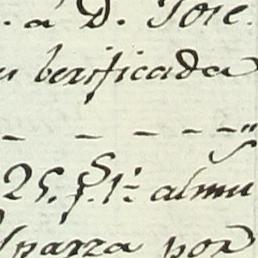 . á D. Jose.
berificada
- - - - - - "
25. f.s 1.. almu
parza por